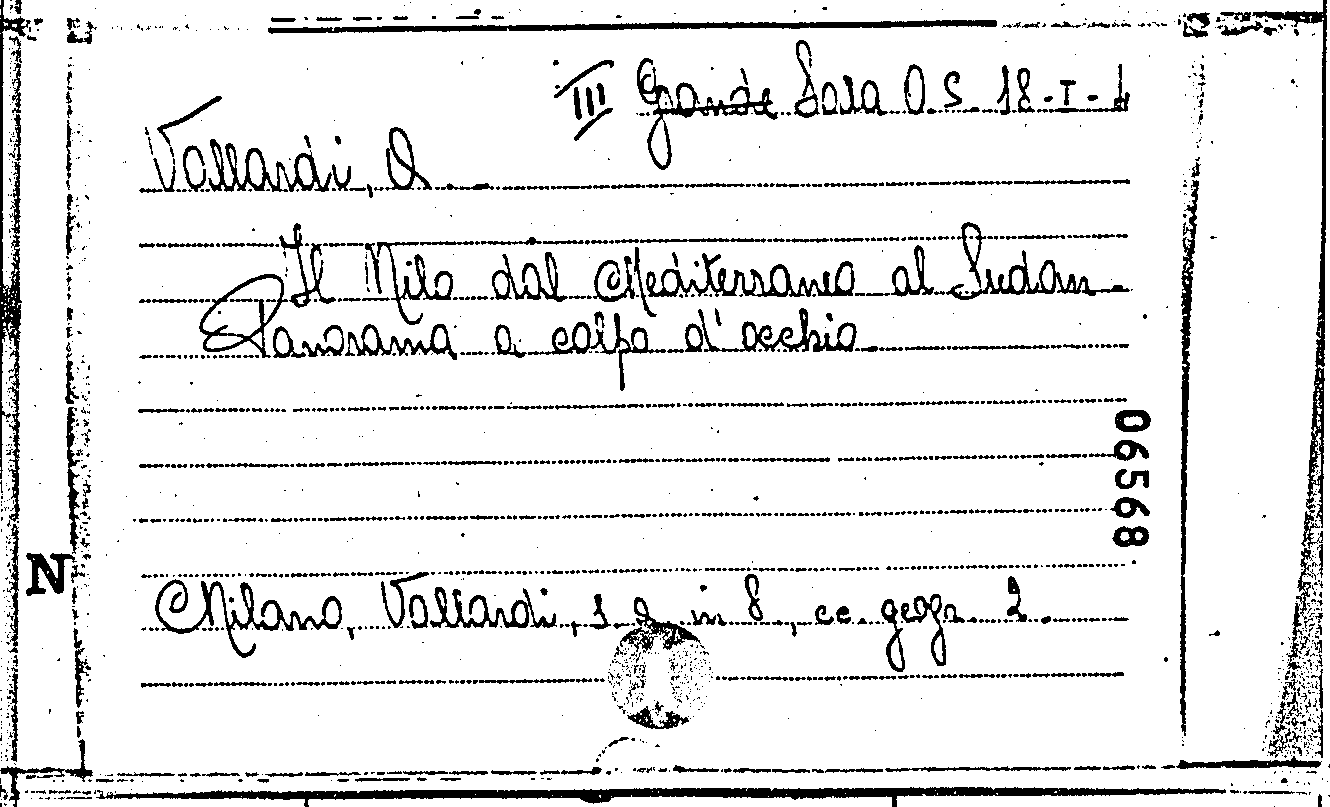 III Grande Sala O.S. 18-I-4
Vallardi, A.
Il Nilo dal Mediterraneo al Sudan.
Panorama a colpo d'occhio.
06568
N
Milano, Vallardi, s.a. in 8, cc. geogr. 2.